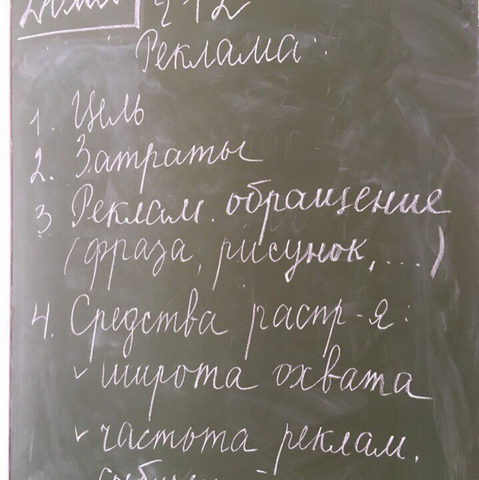 § 12
Реклама:
1. Цель
2. Затраты
3. Реклам. обращение
(фраза, рисунок, ...)
4. Средства распр-я:
✓ широта охвата
✓ частота реклам.